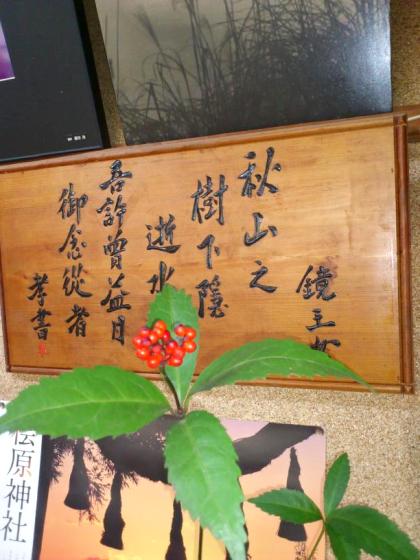 鏡王女
秋山之
樹下隱
逝水
吾許曾益目
御念從者
孝書
桧原神社